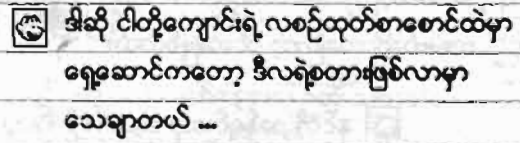 ဒါဆို ငါတို့ကျောင်းရဲ့ လစဉ်ထုတ်စာစောင်ထဲမှာ
ရှေ့ဆောင်ကတော့ ဒီလရဲ့စတားဖြစ်လာမှာ
သေချာတယ် ...